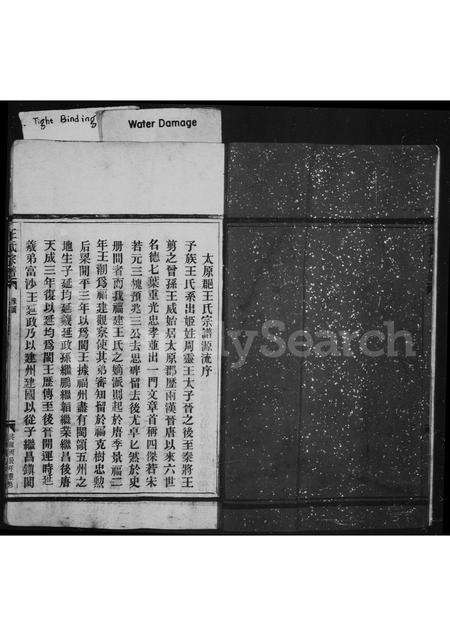 Tight Binding
Water Damage
太原郡王氏宗譜源流序
子族王氏系出姬姓周靈王太子晉之後至秦將王
剪之晉孫王威始居太原郡歷兩漢晉唐以來六世
名德七葉重光忠孝並出一門文章首稱四傑若宋
若元三槐預兆三公去思碑留去後尤卓匕然於史
册間者而我福建王氏之嫡派則起於唐季景福二
年王潮為福建觀察使其弟審知留於福克樹忠勲
后梁開平三年以為閩王據福州盡有閩嶺五州之
地生子延均延羲延政孫繼鵬繼韜繼業繼昌後唐
天成三年復以延均為閩王歷傳至後晉開運時延
羲弟富沙王延政乃以建州建國以從子繼昌鎮閩
王氏宗譜
FamilySearch